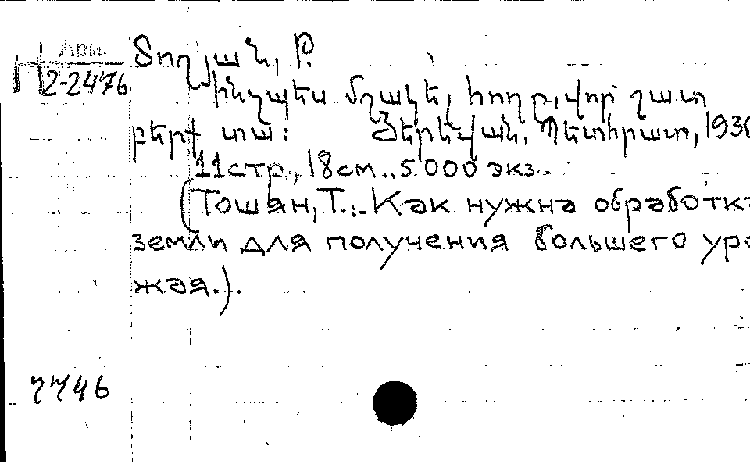 Арм.
2-2476
Տողյան, Թ.
Ինչպես մշակել հողը, վոր շատ
բերք տա: Յերեվան, Պետհրատ, 1930
11 стр., 18 см., 5.000 экз.
(Тошян, Т.:-Как нужна обработка
земли для получения большего уро
жая.).
7746